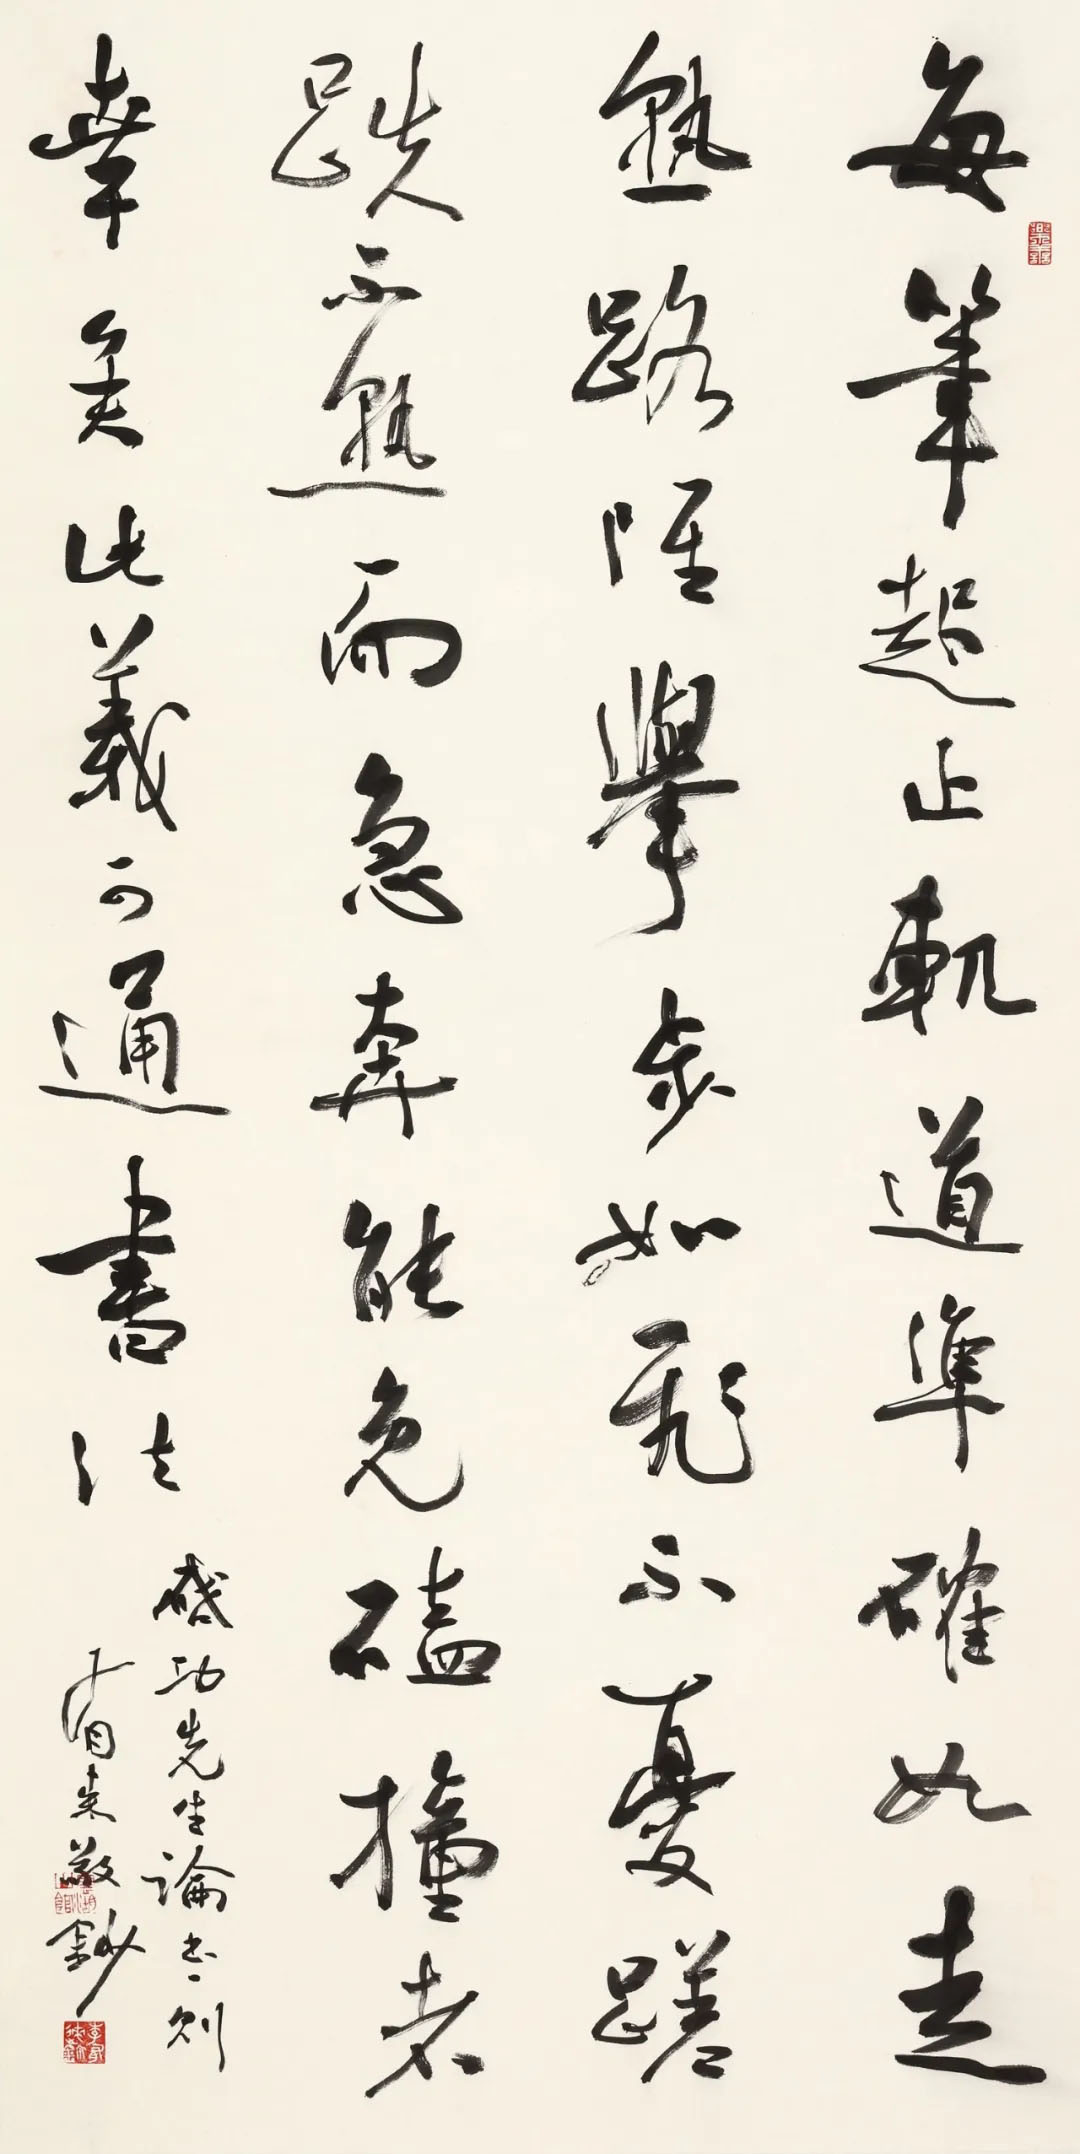 每筆起止軌道準確如走
熟路雖舉步如飛不憂蹉
跌不熟而急奔能免磕撞者
幸矣此義可通書法
啟功先生論書一則
敬鈔